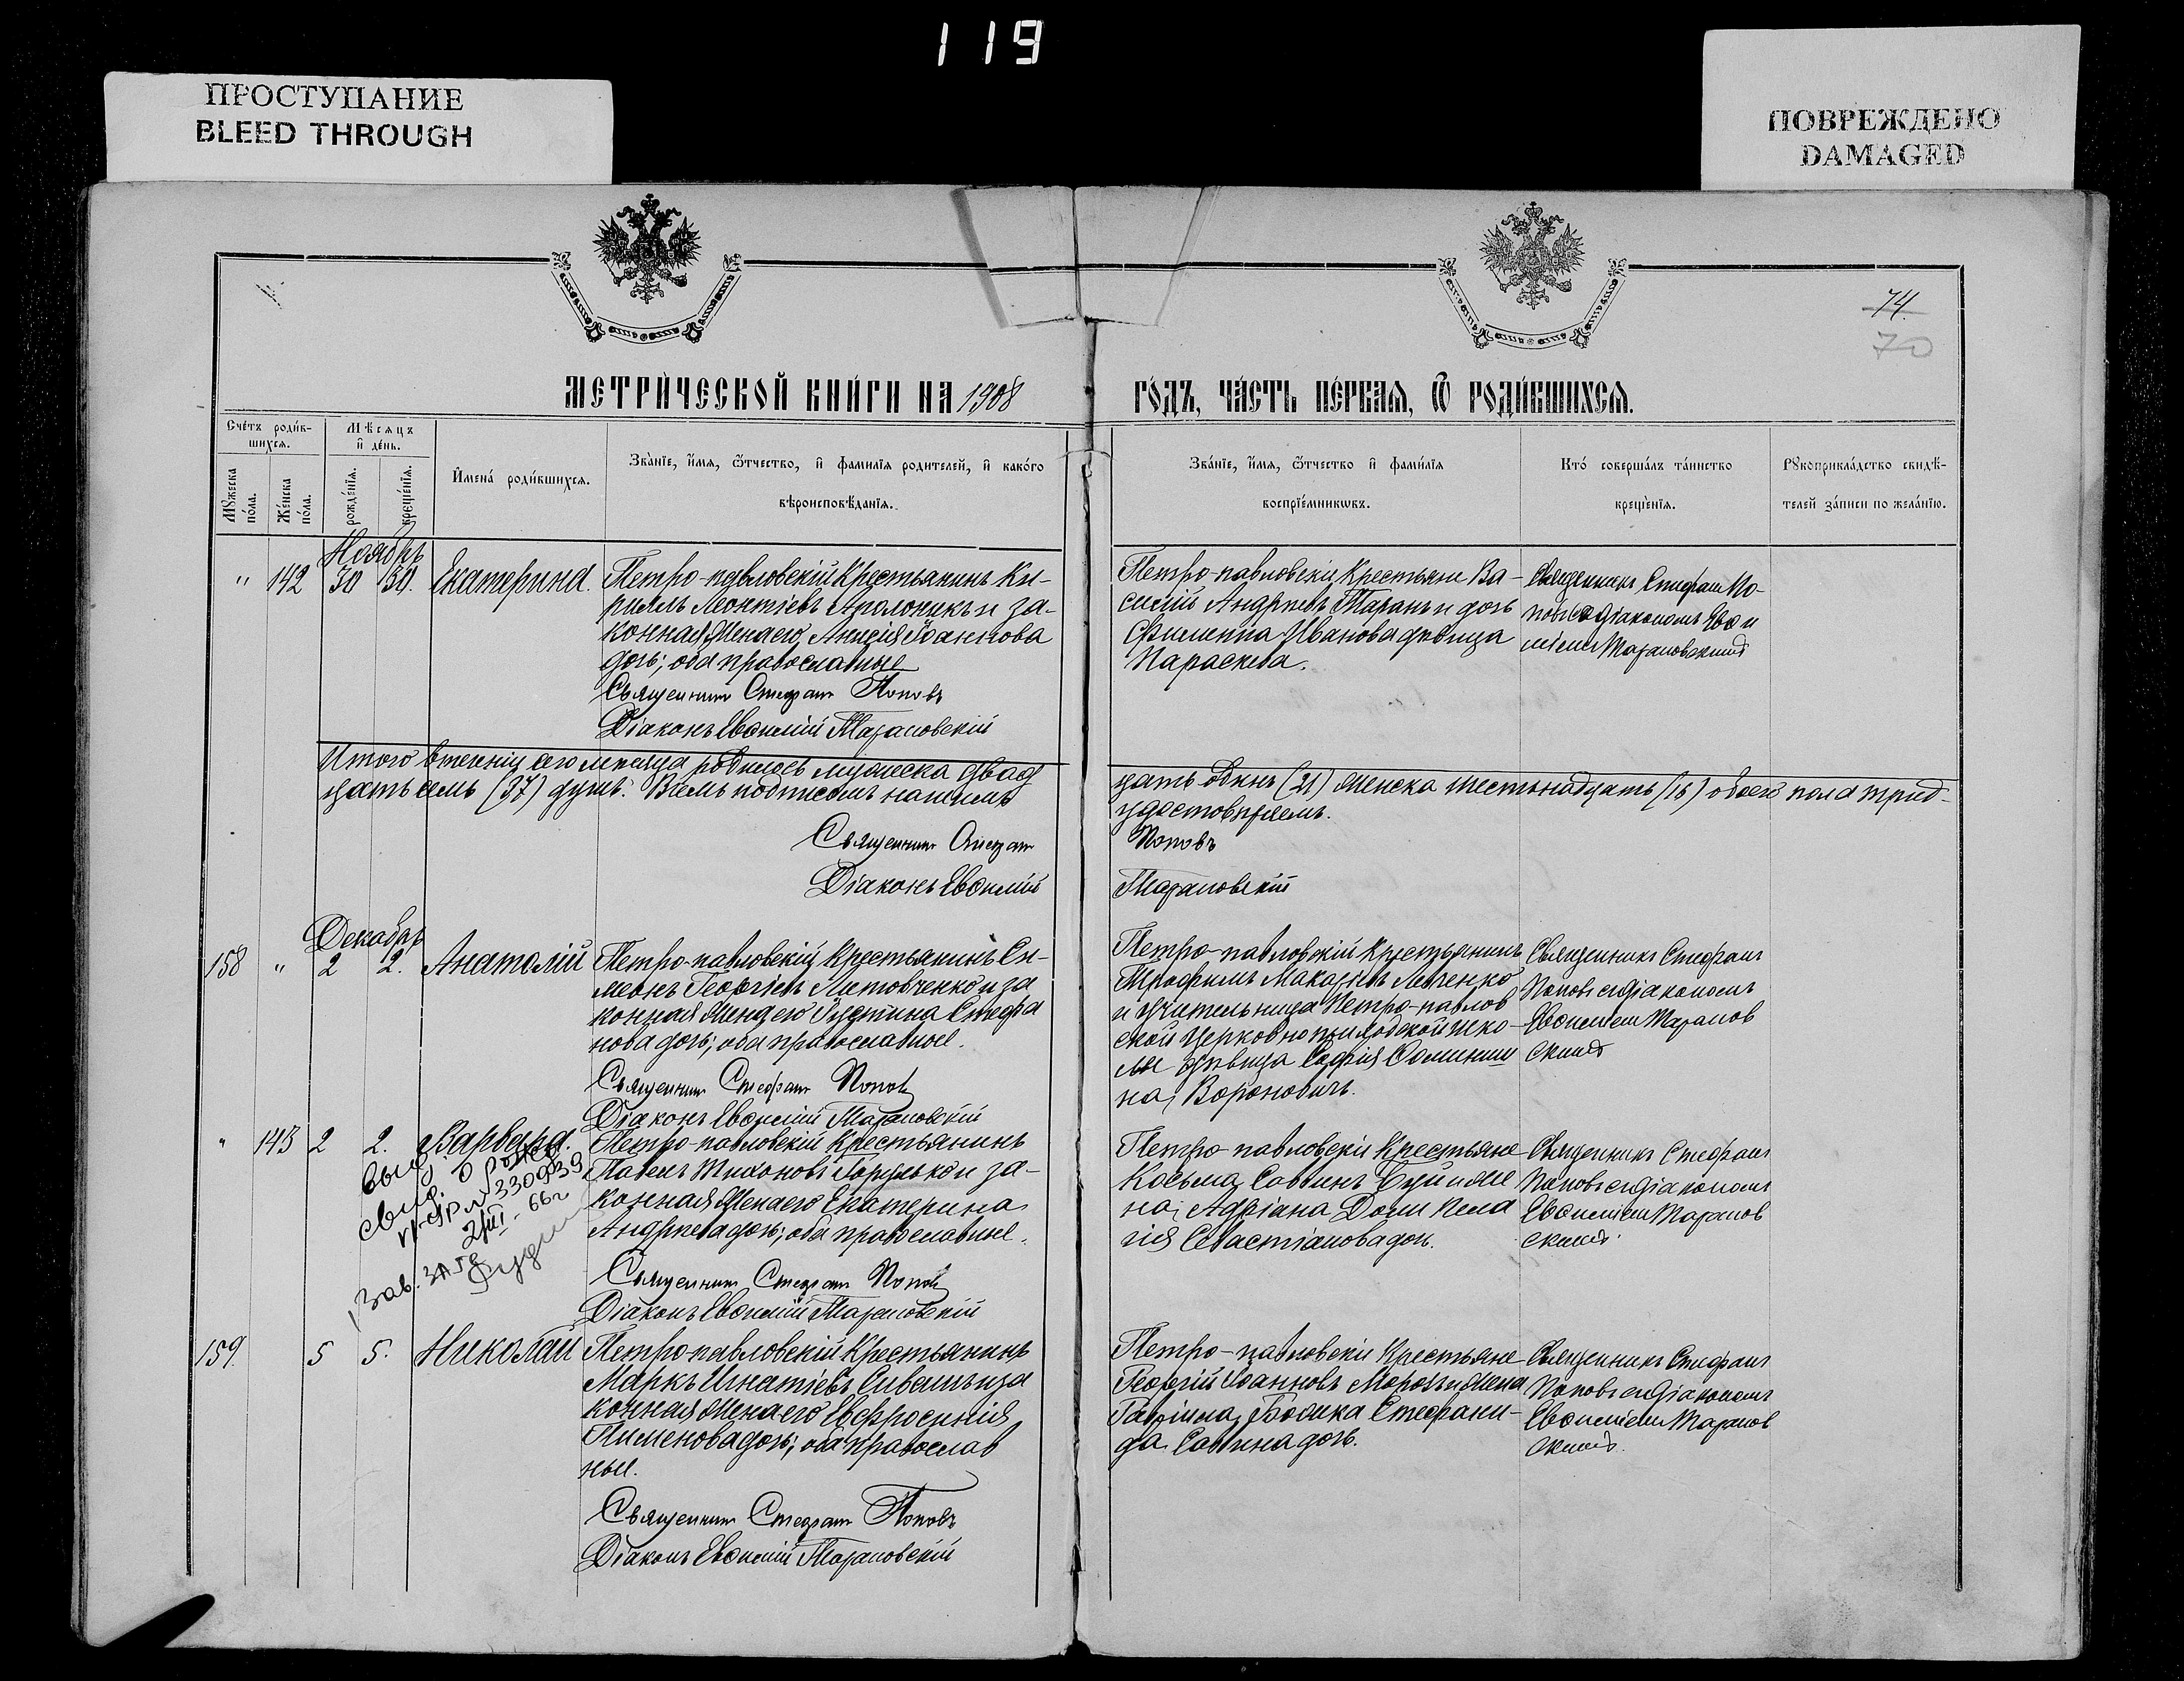 119
ПРОСТУПАНИЕ
BLEED THROUGH
ПОВРЕЖДЕНО
DAMAGED
74.
70
МЕТРИ́ЧЕСКОЙ КНИ́ГИ НА 1908
ГО́ДЪ, ЧА́СТЬ ПЕ́РВАЯ, Ѿ РОДИ́ВШИХСЯ.
Сче́тъ роди́в-
шихся.
Мѣсяцъ
и де́нь.
Мꙋжеска
по́ла.
Же́нска
по́ла.
рожде́нїя.
креще́нїя.
Имена́ роди́вшихся.
Зва́нїе, и́мя, ѻ́тчество, и фами́лїя роди́телей, и како́го
вѣроисповѣ́данїя.
Зва́нїе, и́мя, ѻ́тчество и фами́лїя
воспрїе́мникωвъ.
Кто́ соверша́лъ та́инство
креще́нїя.
Рꙋкоприкла́дство свидѣ́-
телей за́писи по жела́нїю.
Ноябрь
" 142 30 30. Екатерина.
Петро-павловскій Крестьянинъ Ки-
риллъ Леонтіевъ Аполоникъ и за-
конная жена его, Іоаннова
дочь; оба православные
Священникъ Стефанъ Поповъ
Діаконъ Евѳимій Тарановскій
Петро-павловскіе Крестьяне Ва-
силій Андреевъ Таранъ и дочь
Филиппа Иванова девица
Параскева.
Священникъ Стефанъ По-
повъ съ діакономъ Евѳи
міемъ Тарановскимъ
Итого втеченіи сего месяца родилось мужеска двад
цать одинъ (21) женска шестьнадцать (16) обоего пола трид-
цать семь (37) душъ. Въ семъ подписомъ нашимъ
удостоверяемъ.
Священникъ Стефанъ
Поповъ
Діаконъ Евѳимій
Тарановскій
Декабрь
158 " 2 2. Анатолій
Петро-павловскій Крестьянинъ Си-
меонъ Георгіевъ Литовченко и за
конная жена его Іустина Стефа
нова дочь; оба православные.
Священникъ Стефанъ Поповъ
Діаконъ Евѳимій Тарановскій
Петро-павловскій Крестьянинъ
Трофимъ Макаріевъ
и учительница Петро-павлов
ской церковно приходской шко-
лы девица Софія
на, Вороновичъ.
Священникъ Стефанъ
Поповъ съ діакономъ
Евѳиміемъ Таранов
скимъ
" 143 2 2. Варвара.
Петро-павловскій Крестьянинъ
Павелъ Тихоновъ Горулько и за-
конная жена его Екатерина
Андреева дочь; оба православные.
Священникъ Стефанъ Поповъ
Діаконъ Евѳимій Тарановскій
Петро-павловскіе Крестьяне
Косьма Саввинъ Буй и же
на, Адріана Доли Пела
гія Севастіанова дочь.
Священникъ Стефанъ
Поповъ съ діакономъ
Евѳиміемъ Таранов
скимъ.
выд.
свид. о рожд.
№ 330939
2/III - 66 г
Зав. загс
159. 5 5. Николай
Петро-павловскій Крестьянинъ
Маркъ Игнатіевъ Сивашъ и за
конная жена его Евфросинія
Пименова дочь; оба православ
ные.
Священникъ Стефанъ Поповъ
Діаконъ Евѳимій Тарановскій
Петро-павловскіе Крестьяне
Георгій Іоанновъ Морозъ и жена
Гавріила, Бобика Стефани-
да Саввина дочь.
Священникъ Стефанъ
Поповъ съ діакономъ
Евѳиміемъ Таранов
скимъ.